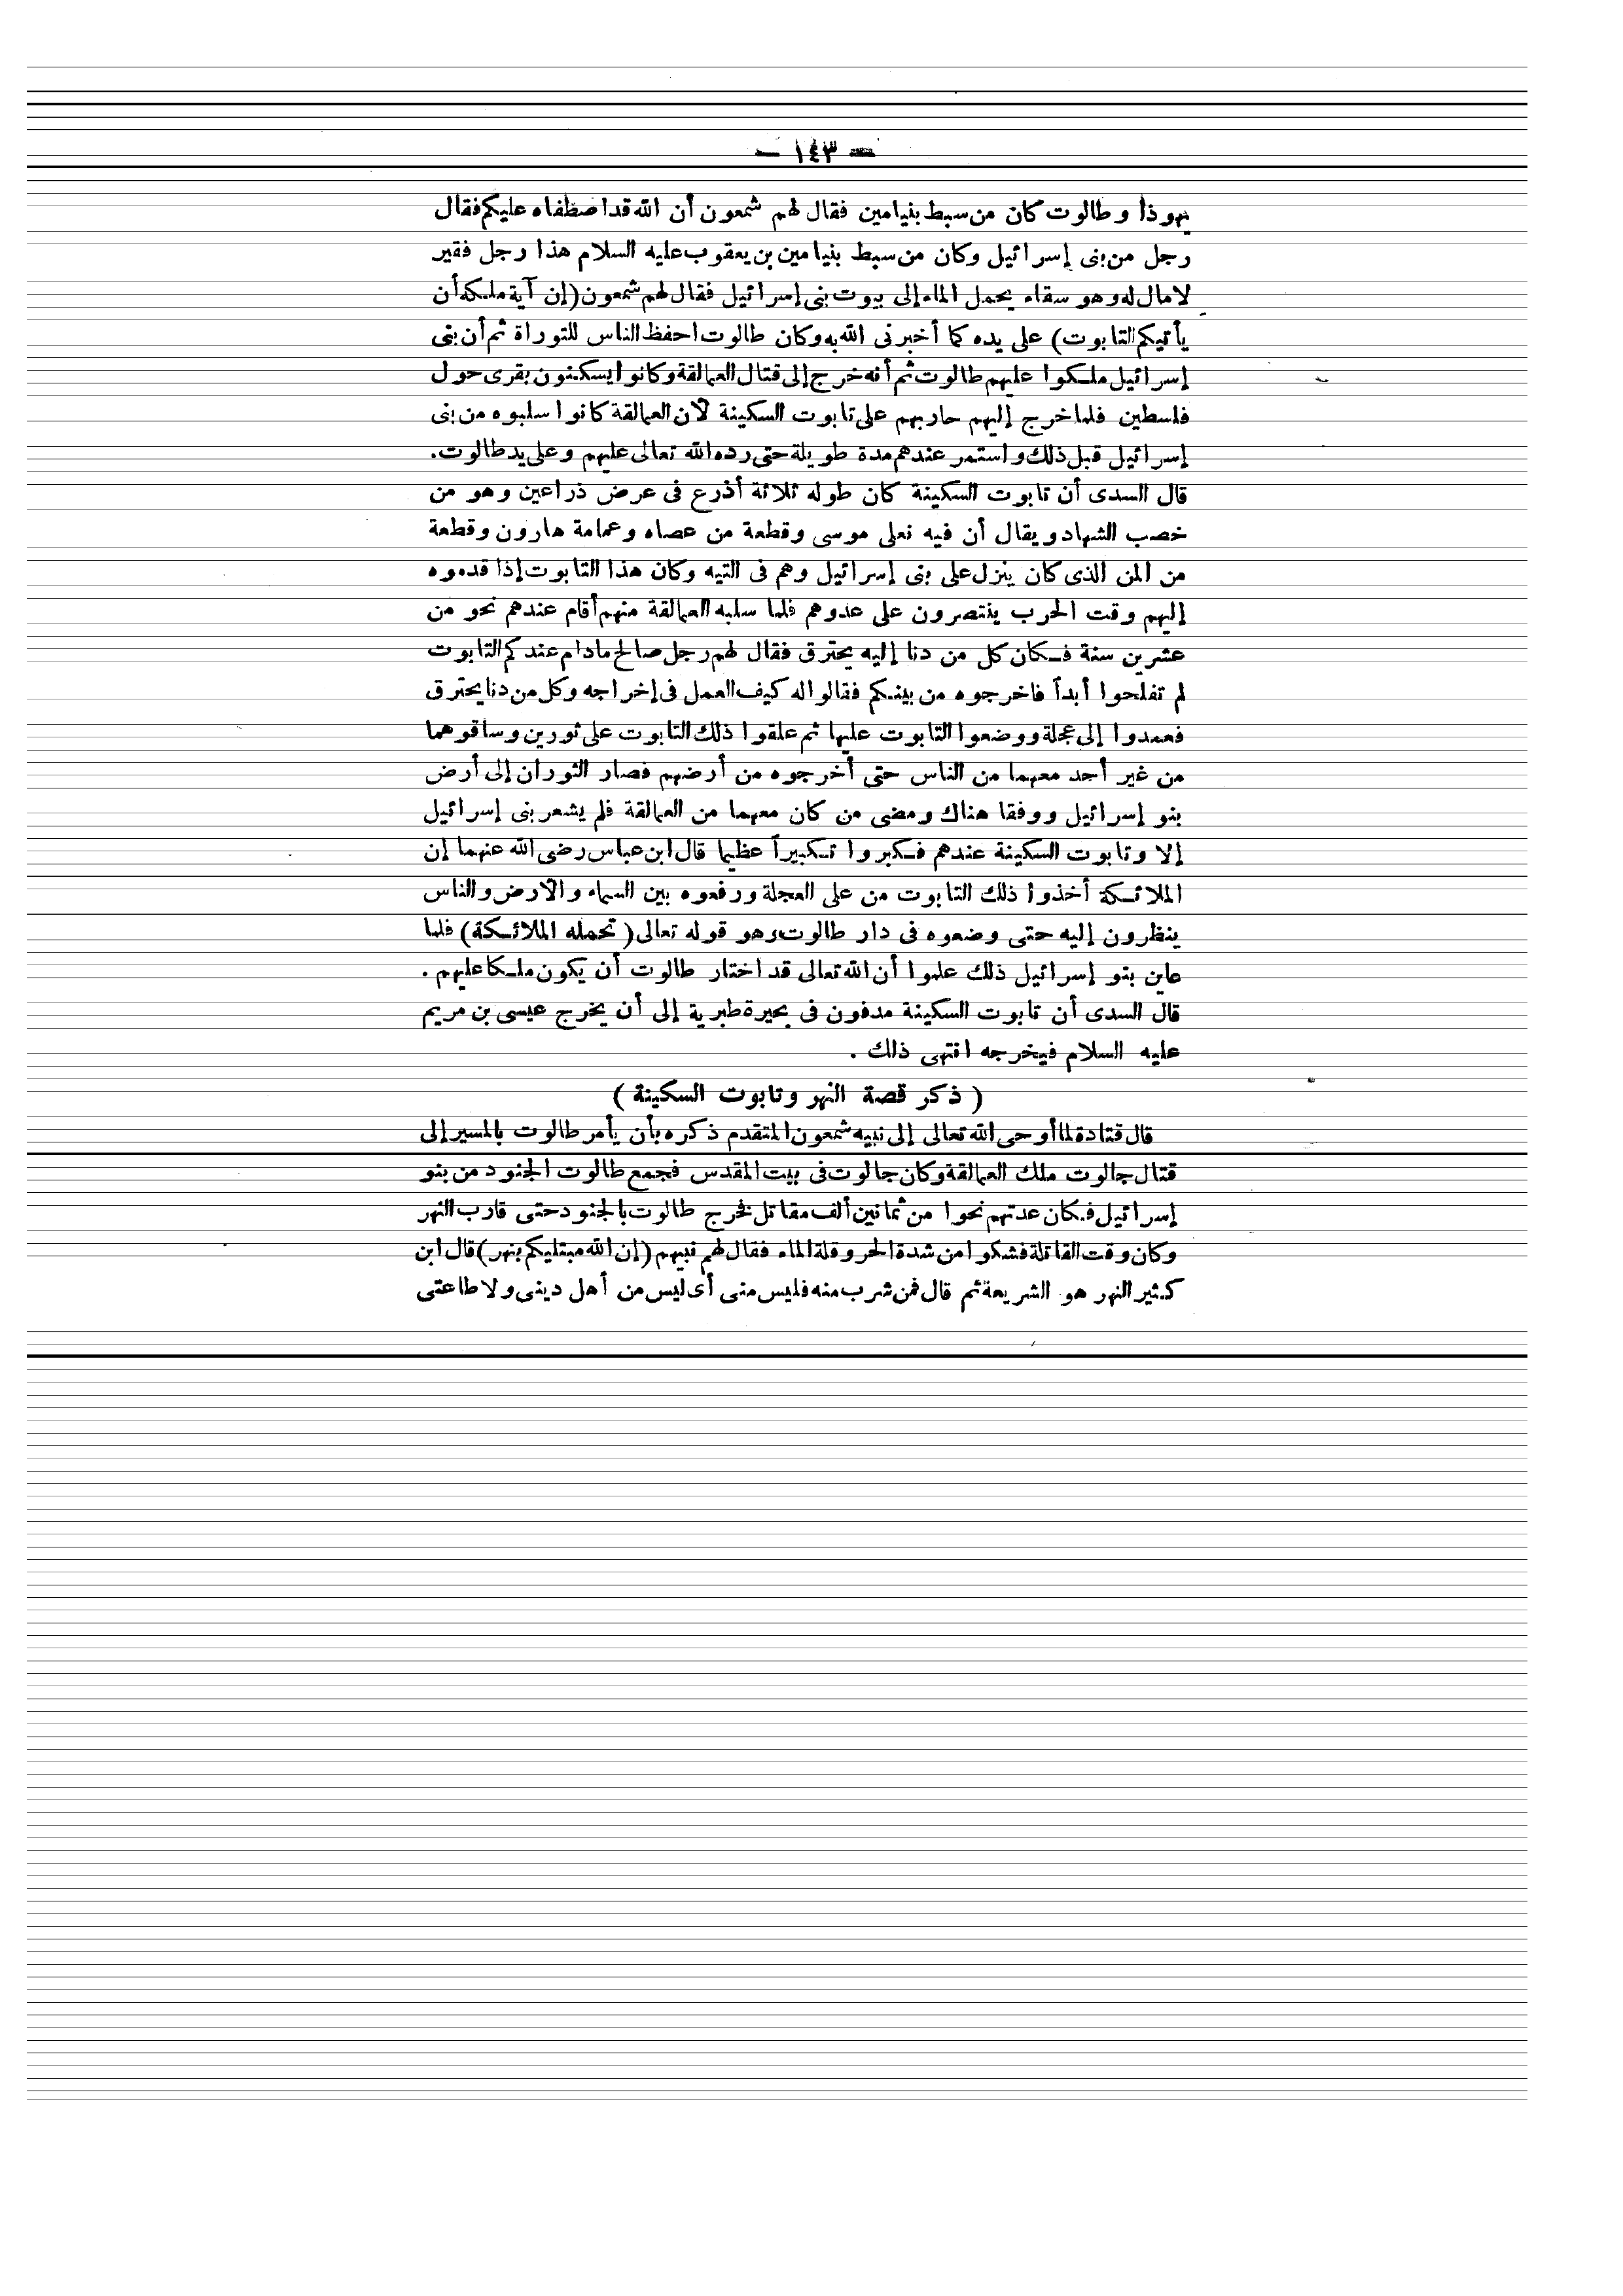 — ١٤٣ —
يهوذا وطالوت كان من سبط بنيامين فقال لهم شمعون أن الله قد اصطفاه عليكم فقال
رجل من بنى إسرائيل وكان من سبط بنيامين بن يعقوب عليه السلام هذا رجل فقير
لا مال له وهو سقاء يحمل الماء إلى بيوت بنى إسرائيل فقال لهم شمعون (إن آية ملكه أن
يأتيكم التابوت) على يده كما أخبرنى الله به وكان طالوت احفظ الناس للتوراة ثم أن بنى
إسرائيل ملكوا عليهم طالوت ثم أنه خرج إلى قتال العمالقة وكانوا يسكنون بقرى حول
فلسطين فلما خرج إليهم حاربهم على تابوت السكينة لأن العمالقة كانوا سلبوه من بنى
إسرائيل قبل ذلك واستمر عندهم مدة طويلة حتى رده الله تعالى عليهم وعلى يد طالوت.
قال السدى أن تابوت السكينة كان طوله ثلاثة أذرع فى عرض ذراعين وهو من
خصب الشهاد ويقال أن فيه نعلى موسى وقطعة من عصاه وعمامة هارون وقطعة
من المن الذى كان ينزل على بنى إسرائيل وهم فى التيه وكان هذا التابوت إذا قدموه
إليهم وقت الحرب ينتصرون على عدوهم فلما سلبه العمالقة منهم أقام عندهم نحو من
عشرين سنة فكان كل من دنا إليه يحترق فقال لهم رجل صالح مادام عندكم التابوت
لم تفلحوا أبداً فاخرجوه من بينكم فقالوا له كيف العمل فى إخراجه وكل من دنا يحترق
فعمدوا إلى عجلة ووضعوا التابوت عليها ثم علقوا ذلك التابوت على ثورين وساقوهما
من غير أجد معهما من الناس حتى أخرجوه من أرضهم فصار الثوران إلى أرض
بنو إسرائيل ووفقا هناك ومضى من كان معهما من العمالقة فلم يشعر بنى إسرائيل
إلا وتابوت السكينة عندهم فكبروا تكبيراً عظيما قال ابن عباس رضى الله عنهما إن
الملائكة أخذوا ذلك التابوت من على العجلة ورفعوه بين السماء والأرض والناس
ينظرون إليه حتى وضعوه فى دار طالوت وهو قوله تعالى (تحمله الملائكة) فلما
عاين بنو إسرائيل ذلك علموا أن الله تعالى قد اختار طالوت أن يكون ملكا عليهم .
قال السدى أن تابوت السكينة مدفون فى بحيرة طبرية إلى أن يخرج عيسى بن مريم
عليه السلام فيخرجه انتهى ذلك .
( ذكر قصة النهر وتابوت السكينة )
قال قتادة لما أوحى الله تعالى إلى نبيه شمعون المتقدم ذكره بأن يأمر طالوت بالمسير إلى
قتال جالوت ملك العمالقة وكان جالوت فى بيت المقدس فجمع طالوت الجنود من بنو
إسرائيل فكان عدتهم نحوا من ثمانين ألف مقاتل فخرج طالوت بالجنود حتى قارب النهر
وكان وقت القائلة فشكوا من شدة الحر وقلة الماء فقال لهم نبيهم (إن الله مبتليكم بنهر) قال ابن
كثير النهر هو الشريعة ثم قال فمن شرب منه فليس منى أى ليس من أهل دينى ولا طاعتى